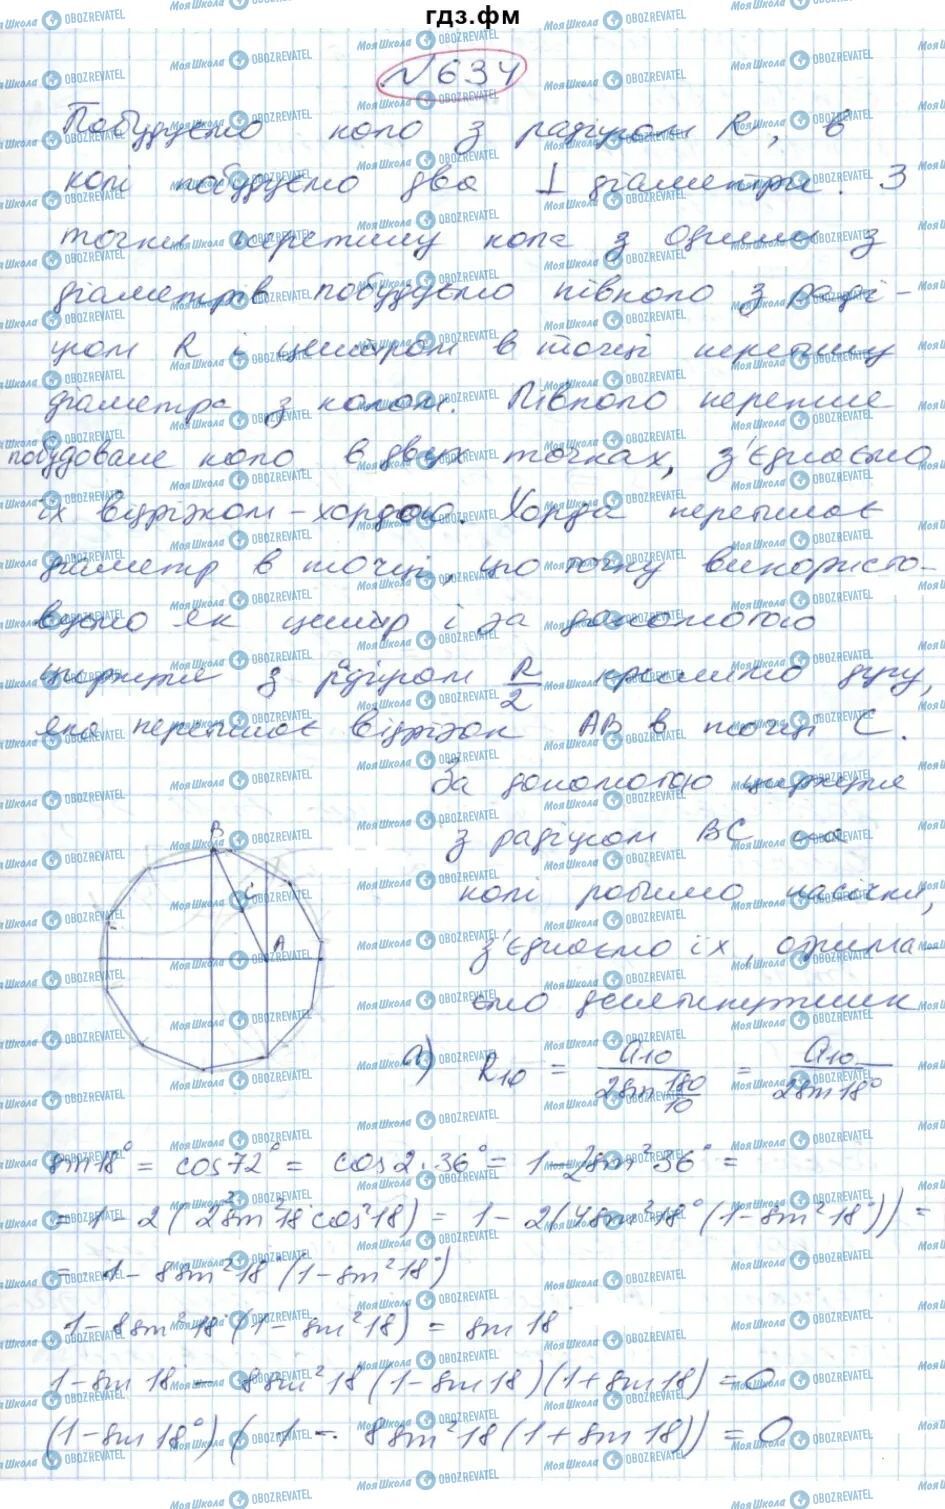 гдз.фм
№634
Побудуємо коло з радіусом R, в
колі побудуємо два ⊥ діаметри. З
точки перетину кола з одним з
діаметрів побудуємо півколо з раді-
усом R і центром в точці перетину
діаметра з колом. Півколо перетне
побудоване коло в двух точках, з'єднаємо
їх відрізком-хордою. Хорда перетинає
діаметр в точці, цю точку використо-
вуємо як центр і за допомогою
циркуля з радіусом R/2 креслимо дугу,
яка перетинає відрізок AB в точці C.
За допомогою циркуля
з радіусом BC на
колі робимо насічки,
з'єднаємо їх, отрима-
ємо десятикутник
B
C
A
а) R₁₀ = a₁₀ / (2sin 180/10) = a₁₀ / (2sin 18°)
sin 18° = cos 72° = cos 2·36° = 1 - 2sin² 36° =
= 1 - 2(2² sin² 18° cos² 18) = 1 - 2(4sin² 18° (1 - sin² 18°)) =
= 1 - 8sin² 18° (1 - sin² 18°)
1 - 8sin² 18° (1 - sin² 18) = sin 18
1 - sin 18 - 8sin² 18 (1 - sin 18)(1 + sin 18) = 0
(1 - sin 18°)(1 - 8sin² 18 (1 + sin 18)) = 0